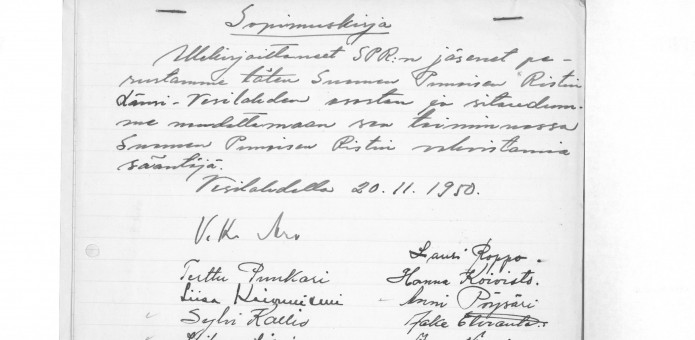 Sopimuskirja
Allekirjoittaneet SPR:n jäsenet pe-
rustamme täten Suomen Punaisen Ristin
Länsi-Vesilahden osaston ja sitoudum-
me noudattamaan sen toiminnassa
Suomen Punaisen Ristin vahvistamia
sääntöjä.
Vesilahdella 20.11.1950.
Lauri Roppo.
Terttu Punkari
Hanna Koivisto.
Liisa
Arvi Pöysäri
Sylvi Kallio